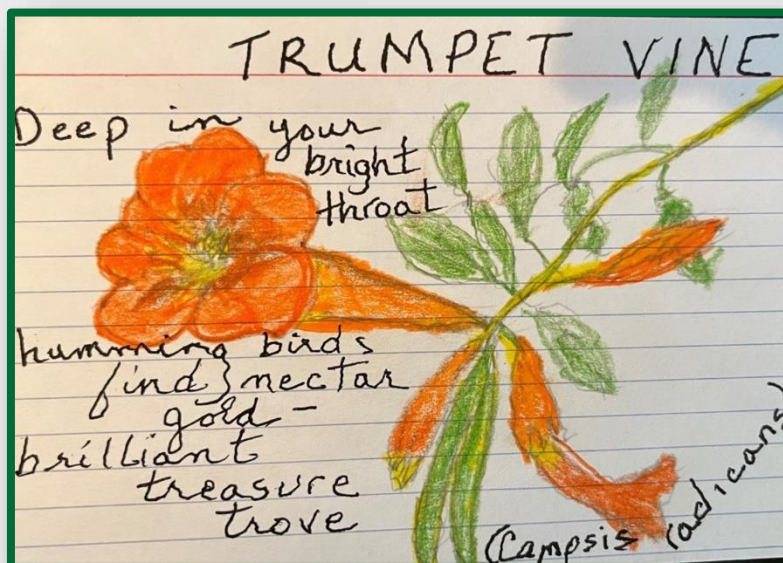 TRUMPET VINE
Deep in your
bright
throat
humming birds
find} nectar
gold –
brilliant
treasure
trove
(Campsis radicans)